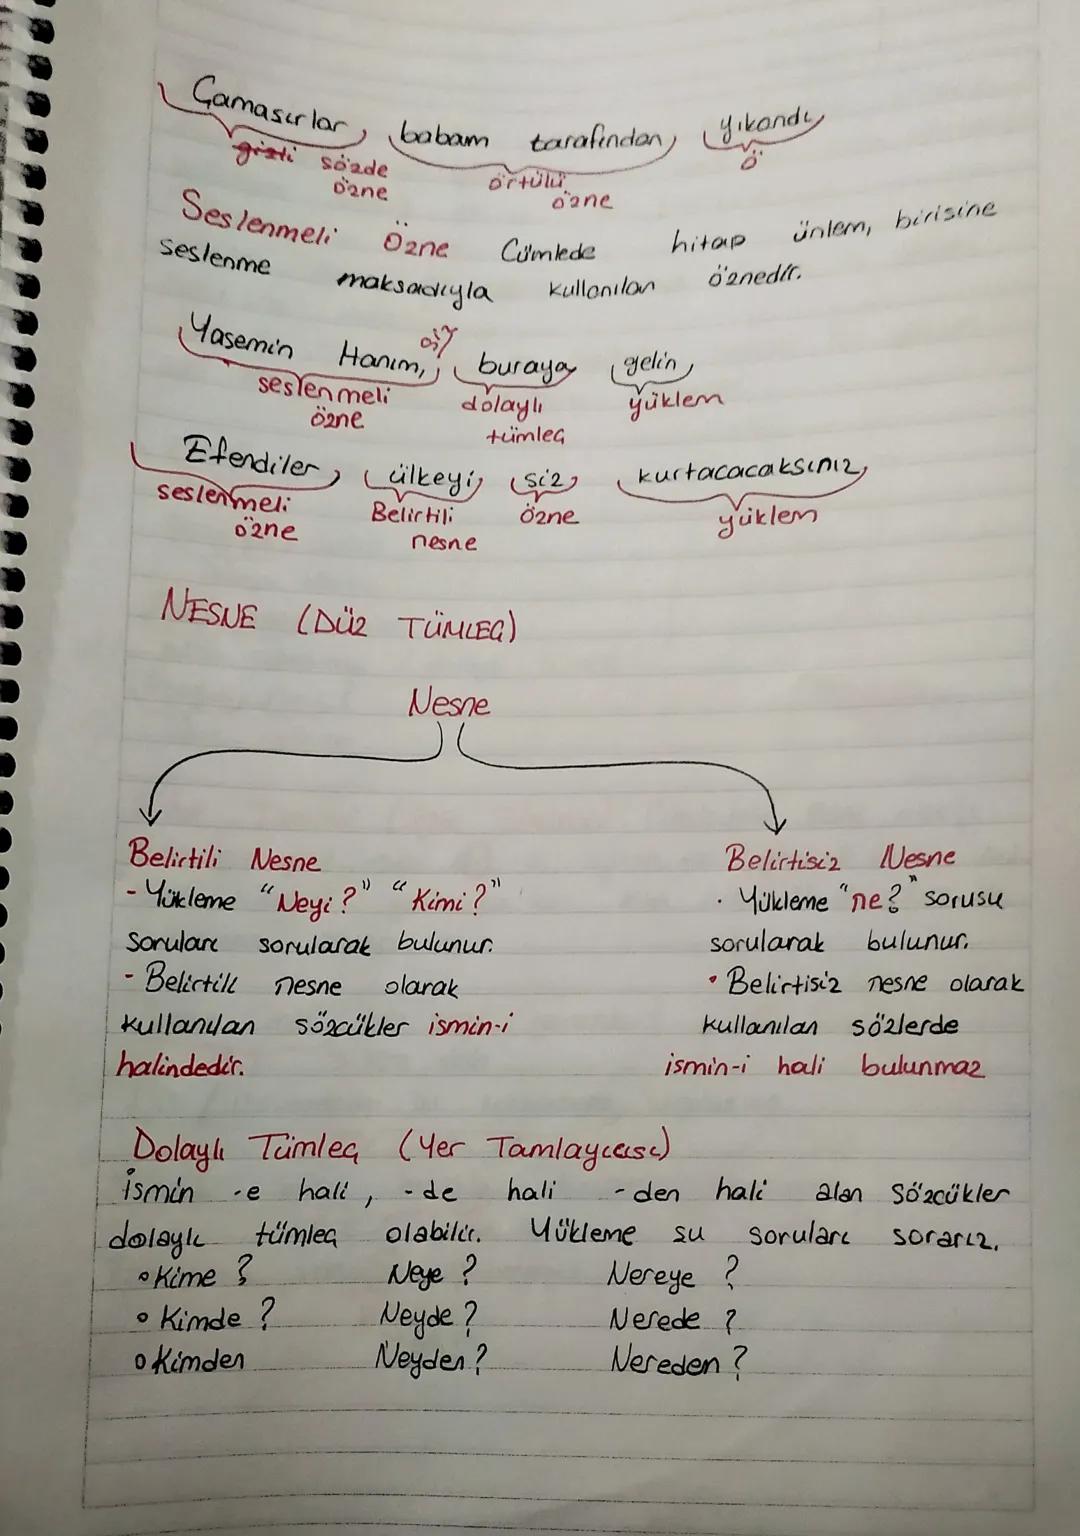 Çamaşırlar babam tarafından yıkandı
gizli sözde özne örtülü özne ö
Seslenmeli Özne Cümlede hitap ünlem, birisine
seslenme maksadıyla kullanılan öznedir.
siz
Yasemin Hanım, buraya gelin
seslenmeli özne dolaylı tümleç yüklem
Efendiler, ülkeyi siz kurtacacaksınız
seslenmeli özne Belirtili nesne özne yüklem
NESNE (DÜZ TÜMLEÇ)
Nesne
Belirtili Nesne
- Yükleme "Neyi?" "Kimi?"
soruları sorularak bulunur.
- Belirtili nesne olarak
kullanılan sözcükler ismin-i
halindedir.
Belirtisiz Nesne
· Yükleme "ne?" sorusu
sorularak bulunur.
• Belirtisiz nesne olarak
kullanılan sözlerde
ismin-i hali bulunmaz
Dolaylı Tümleç (Yer Tamlayıcısı)
İsmin -e hali, -de hali -den hali alan sözcükler
dolaylı tümleç olabilir. Yükleme şu soruları sorarız.
• Kime? Neye? Nereye?
• Kimde? Neyde? Nerede?
• Kimden Neyden? Nereden?